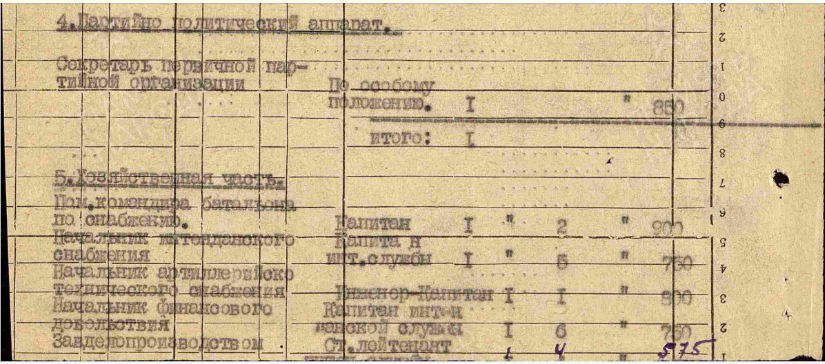 4.Партийно политический аппарат.
Секретарь первичной пар-
тийной организации По особому
положению. I " 850
итого: I
5.Хозяйственная часть.
Пом.командира батальона
по снабжению. Капитан I " 2 " 900
Начальник интенданского Капитан
снабжения инт.службы I " 5 " 750
Начальник артиллерийско
технического снабжения Инженер-Капитан I I " 800
Начальник финансового Капитан интен
довольствия данской службы I 6 " 750
Завделопроизводством Ст.лейтенант 1 4 575
3
2
1
0
9
8
7
6
5
4
3
2
1